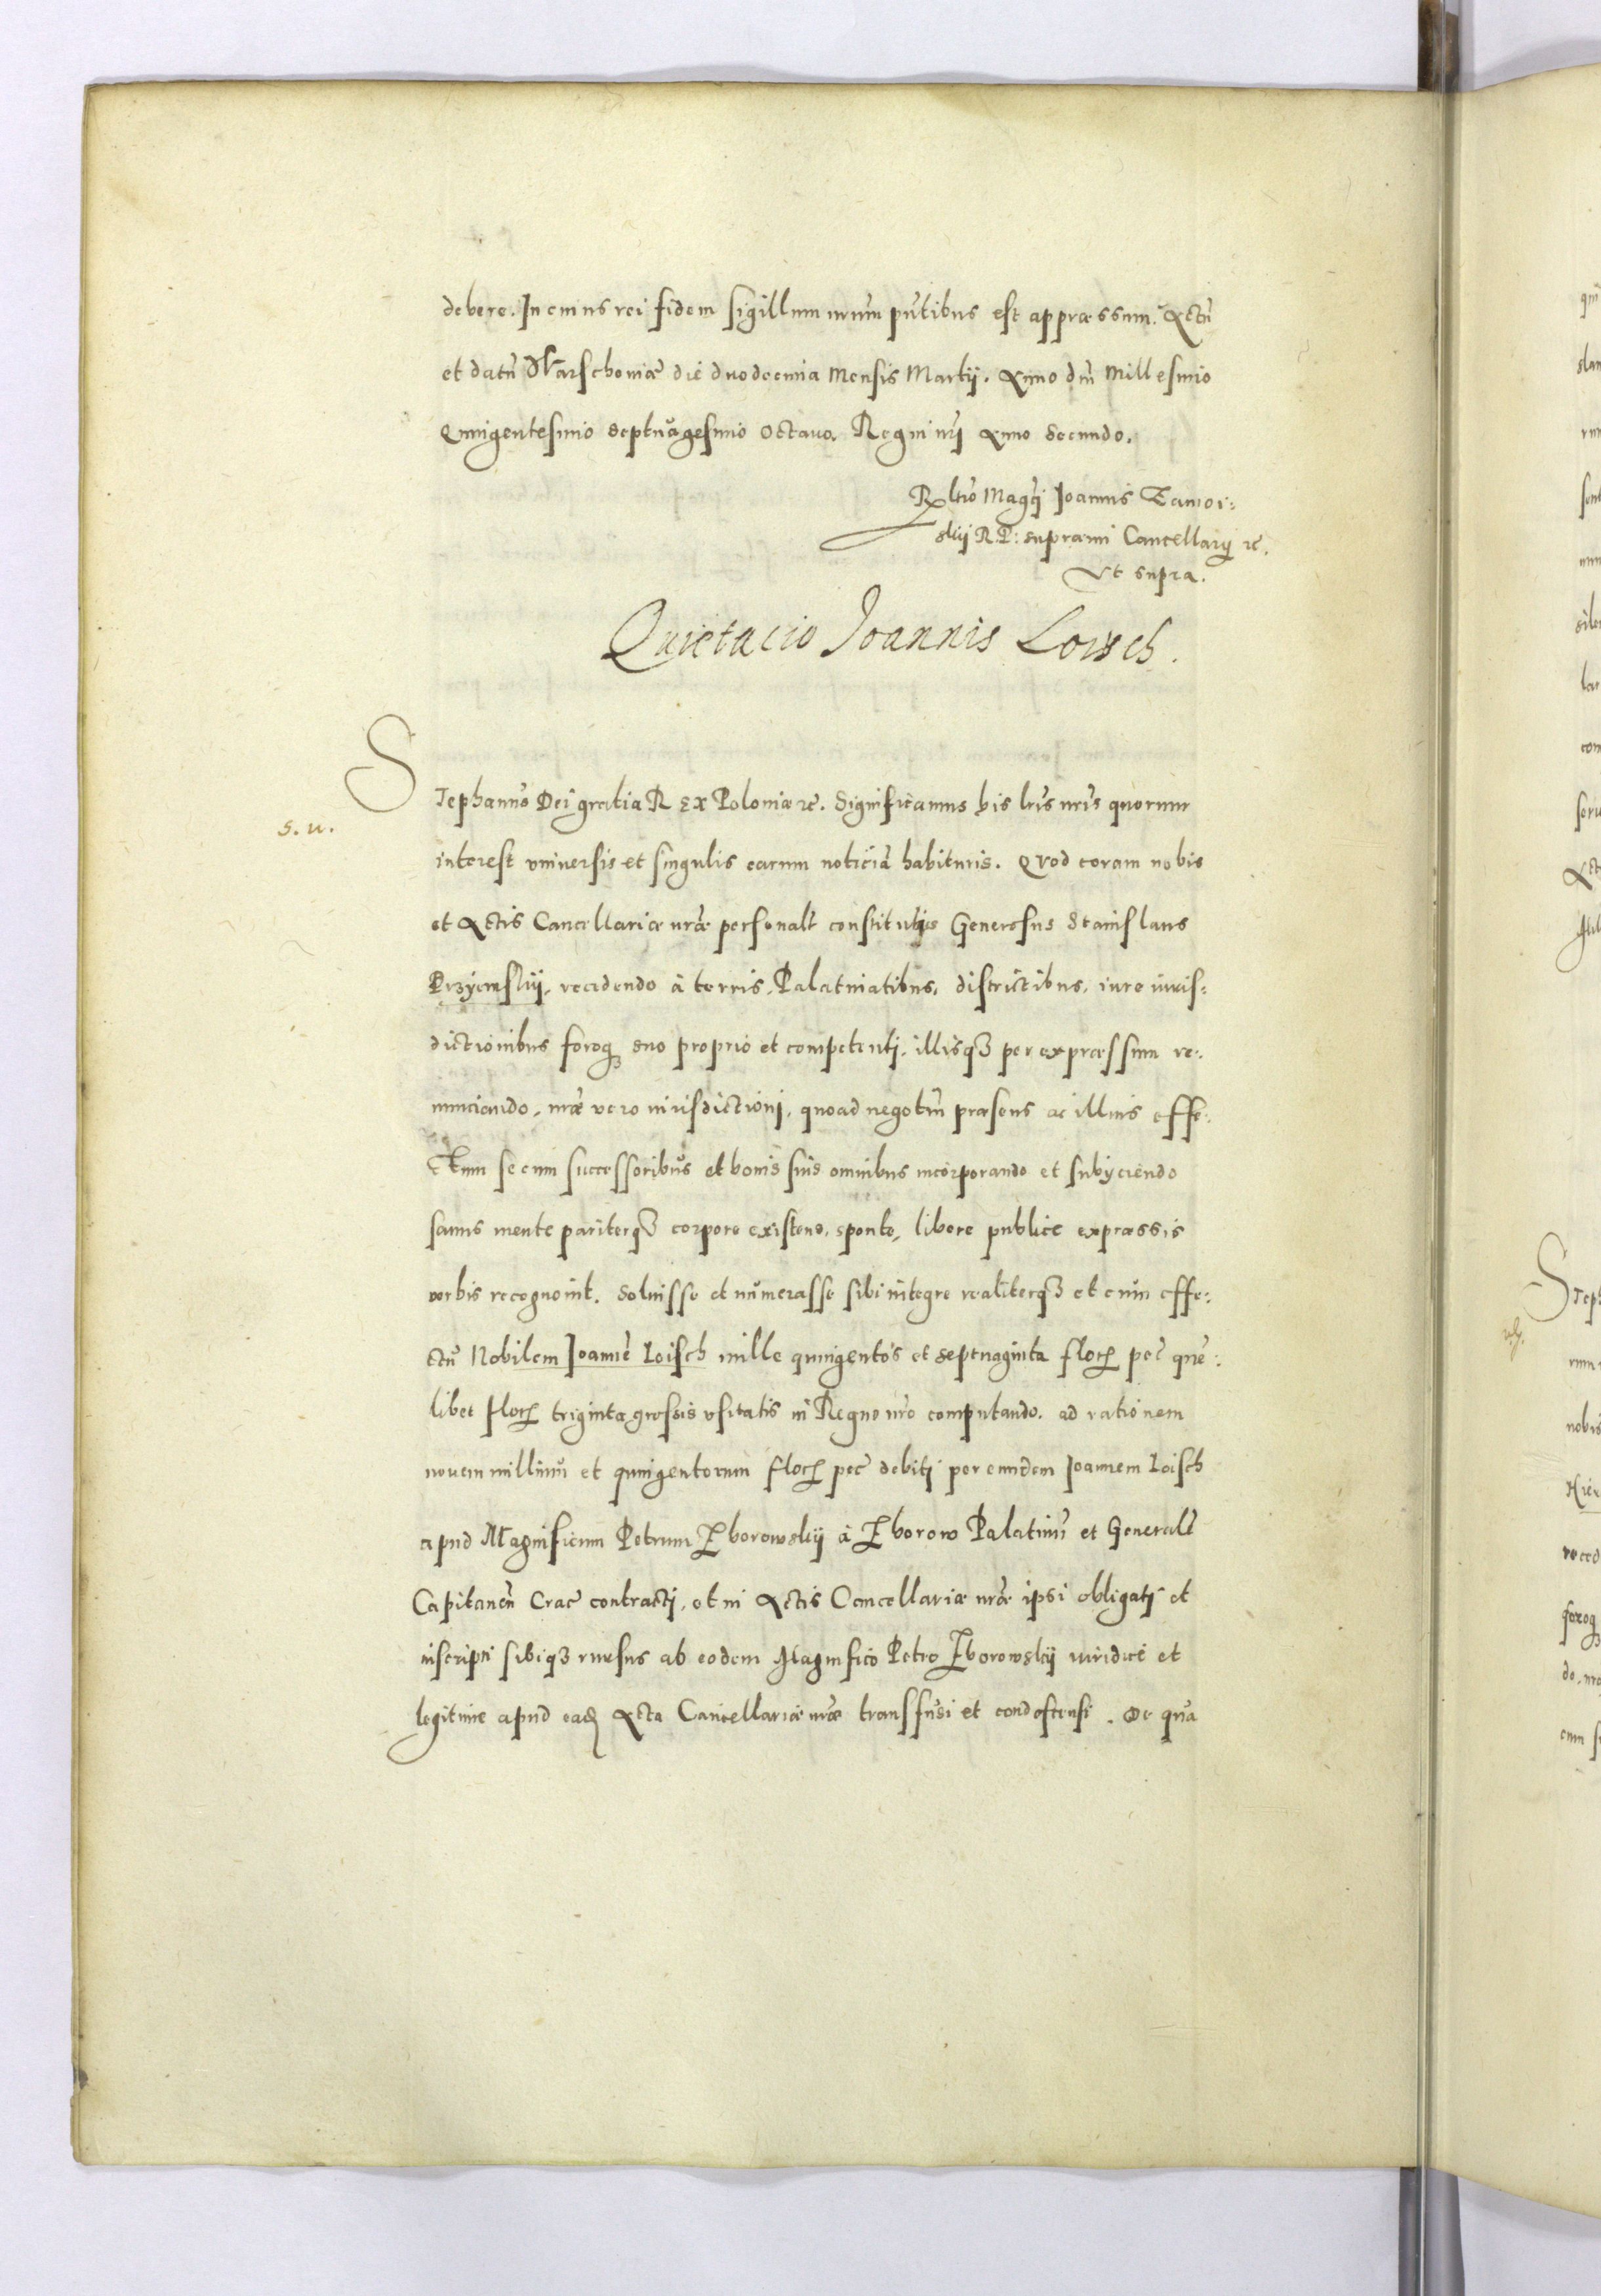 debere. In cuius rei fidem sigillum nrum pntibus est appraessum. Actu
et datu Warschoniae die duodecima Mensis Martij. Anno dni Millesimo
Quingentesimo septuagesimo octauo. Regni nri Anno secundo.
Rltio Magci Joannis Zamoi:
skij R P: supraemi Cancellarij rc.
Vt supra.
Quietacio Joannis Loisch.
Stephanus Dei gratia Rex Poloniae rc. Significamus his lris nris quorum
s. u.
interest vniuersis et singulis earum noticia habituris. Quod coram nobis
et Actis Cancellariae nrae personalr constitutus Generosus Stanislaus
Przyiemskij, recedendo à terris, Palatinatibus, districtibus, iure iuris:
dictionibus foroq3 suo proprio et competenti, illisq3 per expraessum re:
nunciando, nrae vero iurisdictioni, quoad negotiu praesens ac illius effe:
ctum se cum successoribus et bonis suis omnibus incorporando et subijciendo
sanus mente pariterq3 corpore existens, sponte, libere publice expraessis
verbis recognouit. Soluisse et numerasse sibi integre realiterq3 et cum effe:
ctu Nobilem Joanne Loisch mille quingentos et septuaginta flor pec que:
libet flor triginta grossis vsitatis in Regno nro computando. ad rationem
nouem milliuu et quingentorum flor pec debiti per eundem Joannem Loisch
apud Magnificum Petrum Zborowskij à Zborow Palatinu et Generale
Capitaneu Crac contracti, et in Actis Cancellariae nrae ipsi obligati et
inscripti sibiq3 rursus ab eodem Magnifico Petro Zborowskij iuridice et
legitime apud eade Acta Cancellariae nrae transfusi et condescensi. De qua